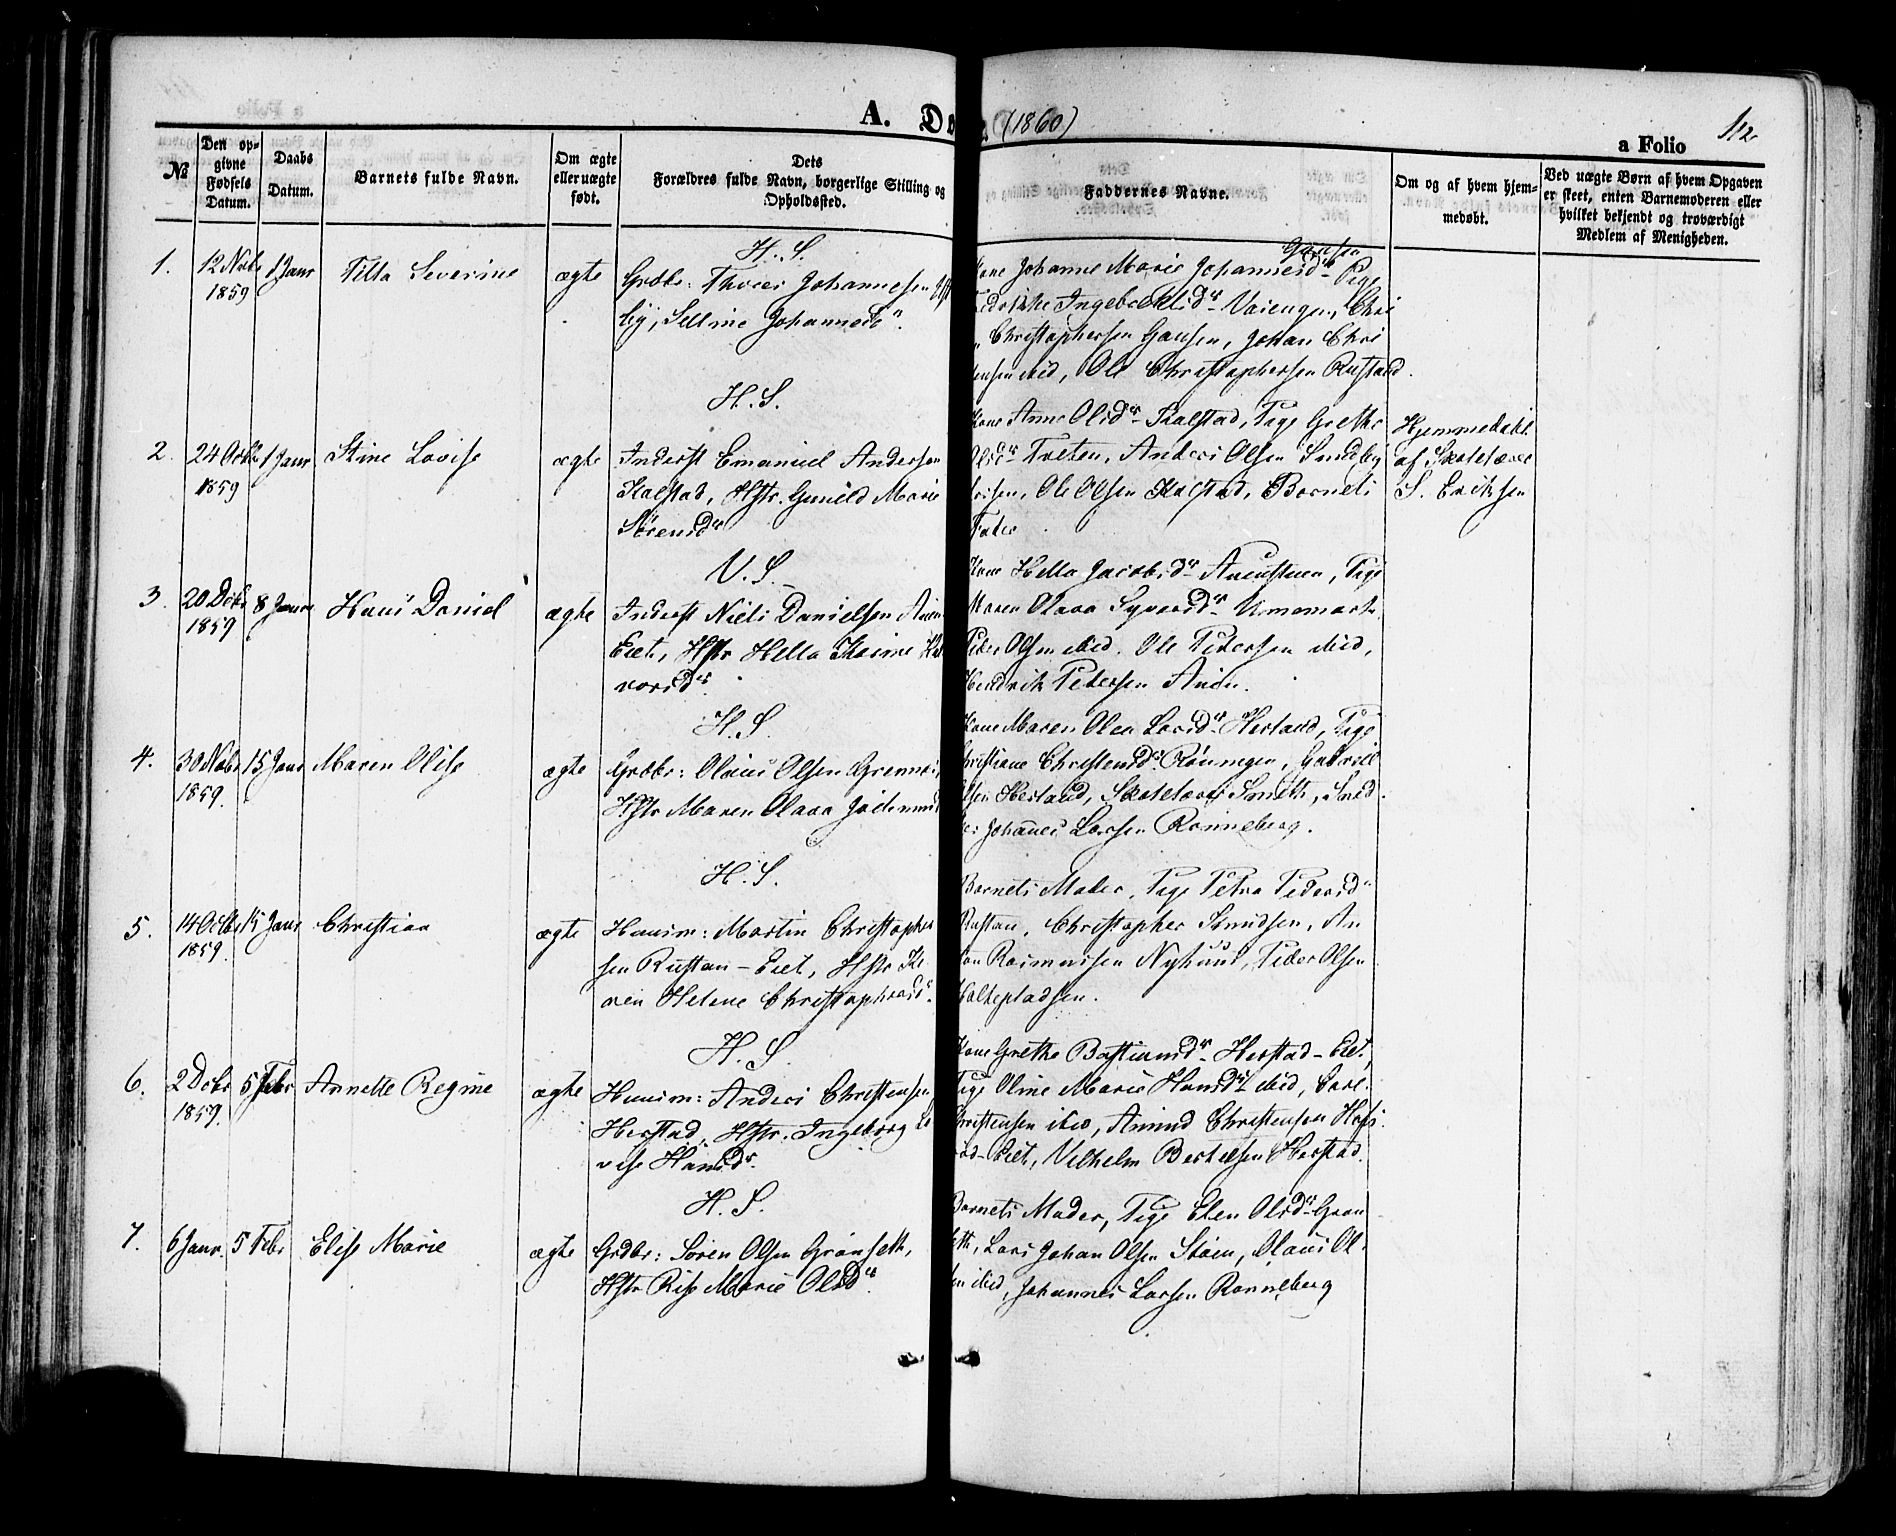 A. Dø (1860) 112
a Folio
№
Den op-
givne
Fødsels
Datum.
Daabs
Datum.
Barnets fulde Navn.
Om ægte
eller uægte
født.
Dets
Forældres fulde Navn, borgerlige Stilling og
Opholdssted.
Faddernes Navne.
Om og af hvem hjem-
medøbt.
Ved uægte Børn af hvem Opgaven
er skeet, enten Barnemoderen eller
hvilket bekjendt og troværdigt
Medlem af Menigheden.
H. S.
1. 12 Novbr 1 Janr Tilla Severine ægte Grdbr: Thorer Johannesen
1859
by, Selline Johannesd
Kone Johanne Marie Johannesdr Gausen Pige
Ingebrektsdr Vaiengen, Chri
Christophersen Gausen, Johan Chri
ensen ibid, Ole Christophersen Rustand.
H. S.
2. 24 Octbr 1 Janr Stine Lovise ægte Inderst Emanuel Andersen
1859
Kalstad, Hstr. Gunild Marie
Sörensdr
Kone Anne Olsdr Kalstad, Pige Grethe
Olsdr Tveten, Anders Olsen Sundby
Ole Olsen Kalstad, Barnets
Fader
Hjemmedøbt
af Skolelærer
S. Eriksen
V. S.
3. 20 Decbr 8 Janr Hans Daniel ægte Inderst Niels Danielsen
1859
Eiet, Hstr Hella Karine Hal
vorsdr.
Kone Hella Jacobsdr Pige
Maren Olava Syversdr
Peder Olsen ibid. Ole Pedersen ibid,
Hendrik Pedersen
H. S.
4. 30 Novbr 15 Janr Maren Olise ægte Grdbr: Olaus Olsen
1859.
Hstr Maren Olava
Kone Maren Olea Larsdr Herland, Pige
Christiane Christensdr. Röningen, Gabriel
Olsen Herland, Skolelærer Smith, Sned
Johannes Larsen Ronneberg.
H. S.
5. 14 Octbr 15 Janr Christian ægte Huusm: Martin Christopher
1859.
sen Rustan-Eiet, Hstr Ka
ren Helene Christophersd
Barnets Moder, Pige Petra Pedersd
Rustan, Christopher An
ton Rasmussen Nyhuus, Peder Olsen
Holtepladsen.
H. S.
6. 2 Decbr 5 Febr Annette Regine ægte Huusm: Anders Christensen
1859.
Herstad, Hstr. Ingeborg Lo
vise Hansdr.
Kone Grethe Bastiansdr Herstad-Eiet,
Pige Oline Marie Hansdr ibid, Carl
Christensen ibid, Amund Christensen
Eiet, Vilhelm Bertelsen Herstad.
H. S.
7. 6 Janr. 5 Febr Elise Marie ægte Grdbr: Sören Olsen Grönseth,
Hstr Rise Marie Olsdr
Barnets Moder, Pige Elen Olsdr Grön
seth, Lars Johan Olsen Stöen, Olaus Ol
sen ibid, Johannes Larsen Ronneberg